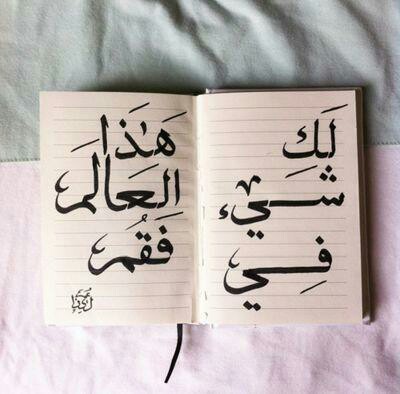 لَكَ
شَيء
فِي
هَذَا
العَالَم
فَقُم